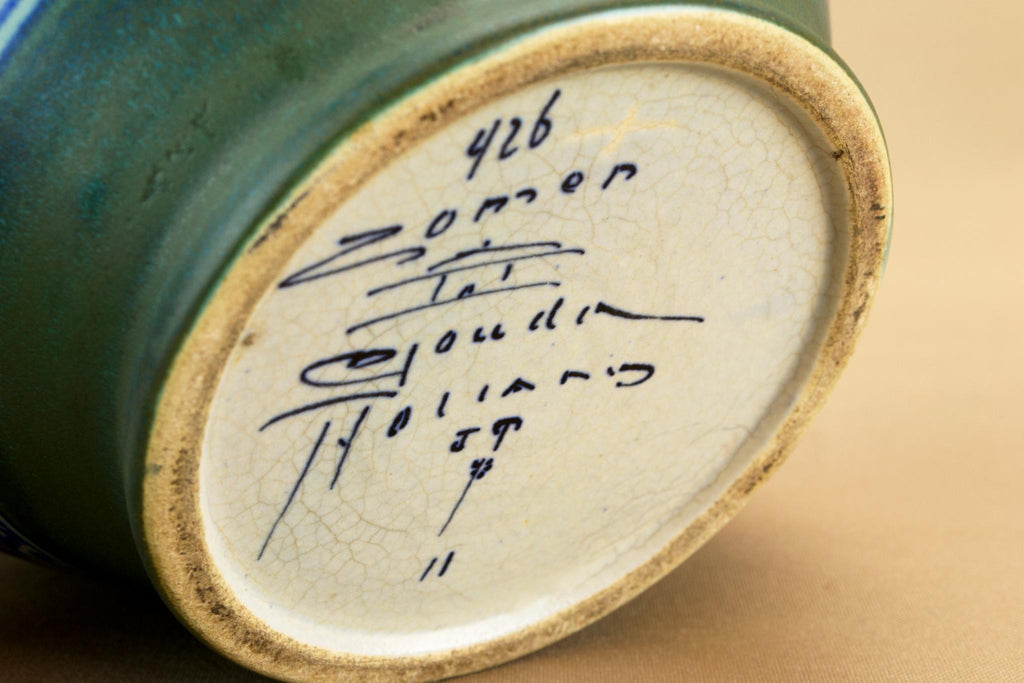 426
Zomer
Gouda
Holland
JT
11